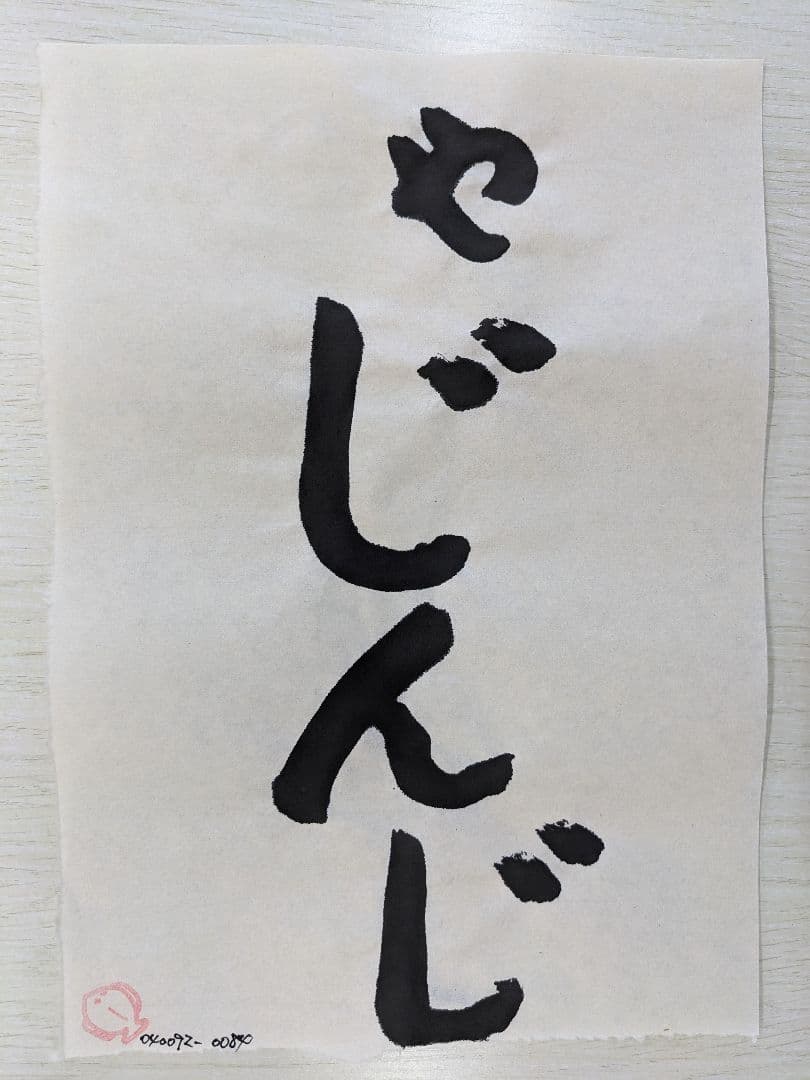 やじんじ
040092-0084